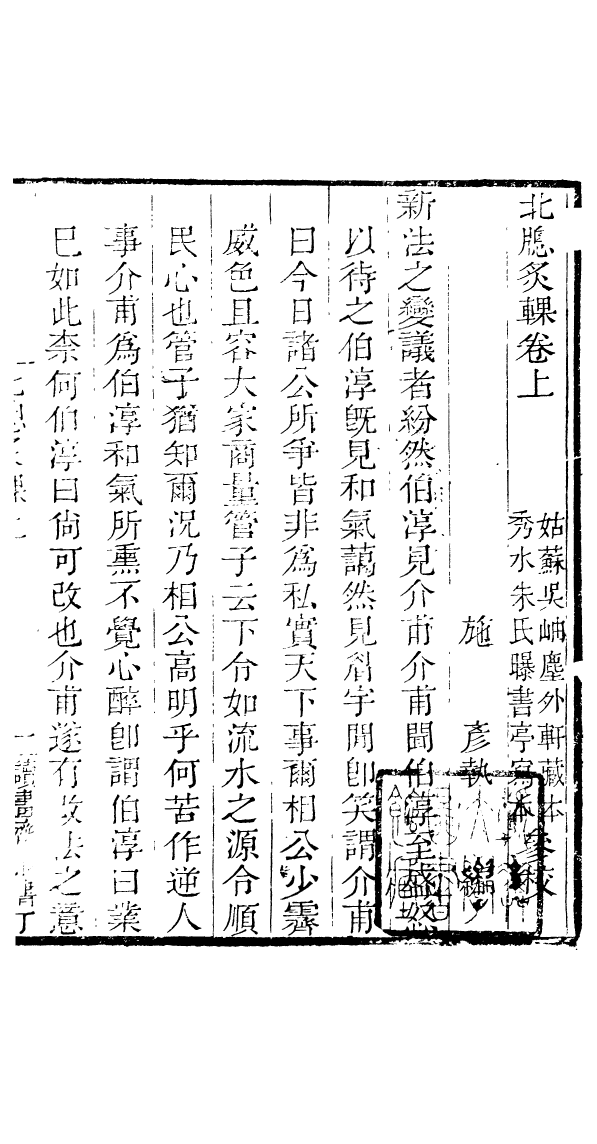 北牕炙輠卷上
姑蘇吳岫塵外軒藏本
秀水朱氏曝書亭寫本參校
施彥執編
新法之變議者紛然伯淳見介甫介甫聞伯淳至盛怒
以待之伯淳旣見和氣藹然見眉宇間卽笑謂介甫
曰今日諸公所爭皆非爲私實天下事爾相公少霽
威色且容大家商量管子云下令如流水之源令順
民心也管子猶知爾況乃相公高明乎何苦作逆人
事介甫爲伯淳和氣所熏不覺心醉卽謂伯淳曰業
已如此柰何伯淳曰尙可改也介甫遂有改法之意
讀畫齋 書丁